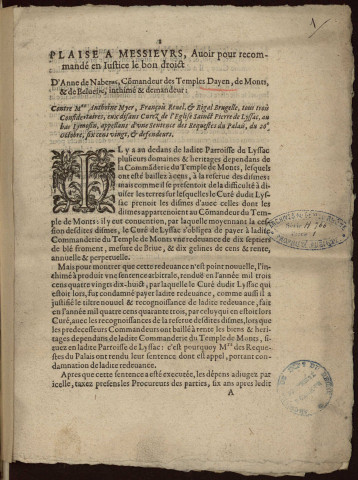 1
PLAISE A MESSIEVRS, Auoir pour recom-
mandé en Iustice le bon droict
D'Anne de Naberat, Cōmandeur des Temples Dayen, de Monts,
& de Belueſic, inthimé & demandeur:
Contre Mes Anthoine Myer, François Reuel, & Rigal Brugelle, tous trois
Confidentiaires, eux diſans Curez de l'Eglise Sainct Pierre de Lyſſac, au
bas Lymoſin, appellans d'vne Sentence des Requeſtes du Palais, du 20e
Octobre, ſix cens vingt, & defendeurs.
IL y a an dedans de ladite Parroiſſe de Lyſſac
pluſieurs domaines & heritages dependans de
la Commāderie du Temple de Monts, leſquels
ont eſté baillez à cens, à la reſerue des diſmes:
mais comme il ſe preſentoit de la difficulté à di-
uiſer les terres ſur leſquelles le Curé dudit Lyſ-
ſac prenoit les diſmes d'auec celles dont les
diſmes appartenoient au Commandeur du Tem-
ple de Monts: il y eut conuention, par laquelle moyennant la ceſſi-
on deſdites diſmes, le Curé de Lyſſac s'obligea de payer à ladite
Commanderie du Temple de Monts vne redeuance de dix ſeptiers
de blé froment, meſure de Briue, & dix gelines de cens & rente,
annuelle & perpetuelle.
Mais pour monſtrer que cette redeuance n'eſt point nouuelle, l'in-
thimé à produit vne ſentence arbitrale, renduë en l'année mil trois
cens quatre vingts dix-huict, par laquelle le Curé dudit Lyſſac qui
eſtoit lors, fut condamné payer ladite redeuance, comme auſſi il a
juſtifié le tiltre nouuel & recognoiſſance de ladite redeuance, fait
en l'année mil quatre cens quarante trois, par celuy qui en eſtoit lors
Curé, auec les recognoiſſances de la reſerue deſdites diſmes, lors que
les predeceſſeurs Commandeurs ont baillé à rente les biens & heri-
tages dependans de ladite Commanderie du Temple de Monts, ſi-
tuez en ladite Parroiſſe de Lyſſac: c'eſt pourquoy Mrs des Reque-
ſtes du Palais ont rendu leur ſentence dont eſt appel, portant con-
damnation de ladite redeuance.
Apres que cette ſentence a eſté executée, les dépens adiugez par
icelle, taxez preſens les Procureurs des parties, ſix ans apres ledit
A